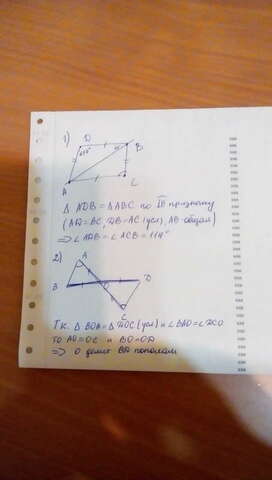 1)
D
B
114°
A
C
Δ ADB = Δ ABC по III признаку
(AD=BC, DB=AC (усл), AB-общая)
=> ∠ADB = ∠ACB = 114°
2)
A
B
D
C
Т.к. Δ BOA = Δ DOC (усл) и ∠BAO = ∠DCO
то AO=OC и BO=OD
=> O делит BD пополам